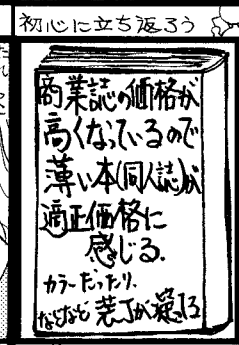 初心に立ち返ろう
商業誌の価格が
高くなっているので
薄い本(同人誌)が
適正価格に
感じる.
カラーだったり,
などなど 装丁が凝ってる